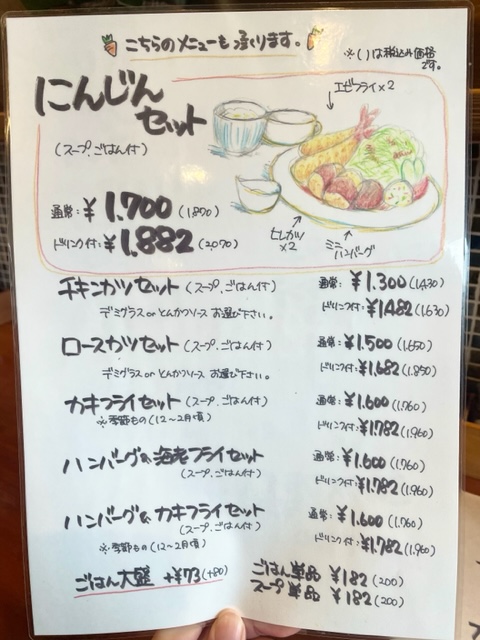 こちらのメニューも承ります。
※( )は税込み価格
です。
にんじん
セット
(スープ、ごはん付)
エビフライ×2
ヒレカツ
×2
ミニ
ハンバーグ
通常:¥1.700(1.870)
ドリンク付:¥1.882(2.070)
チキンカツセット(スープ、ごはん付)
デミグラスorとんかつソースお選び下さい。
通常:¥1.300(1.430)
ドリンク付:¥1.482(1.630)
ロースカツセット(スープ、ごはん付)
デミグラスorとんかつソースお選び下さい。
通常:¥1.500(1.650)
ドリンク付:¥1.682(1.850)
カキフライセット(スープ、ごはん付)
※季節もの(12~2月頃)
通常:¥1.600(1.760)
ドリンク付:¥1.782(1.960)
ハンバーグ&海老フライセット
(スープ、ごはん付)
通常:¥1.600(1.760)
ドリンク付:¥1.782(1.960)
ハンバーグ&カキフライセット
(スープ、ごはん付)
※季節もの(12~2月頃)
通常:¥1.600(1.760)
ドリンク付:¥1.782(1.960)
ごはん大盛 +¥73(+80)
ごはん単品 ¥182(200)
スープ単品 ¥182(200)